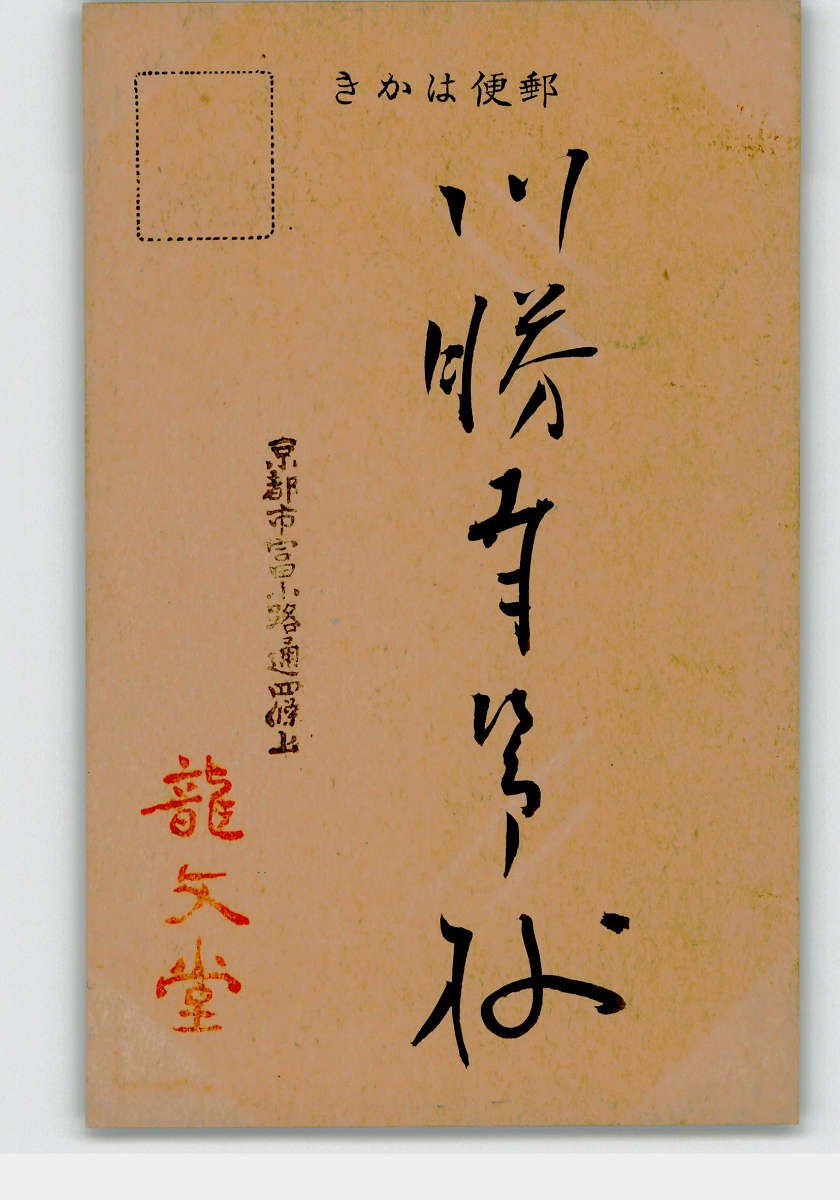 郵便はかき
川勝
京都市富小路通四條上
龍文堂